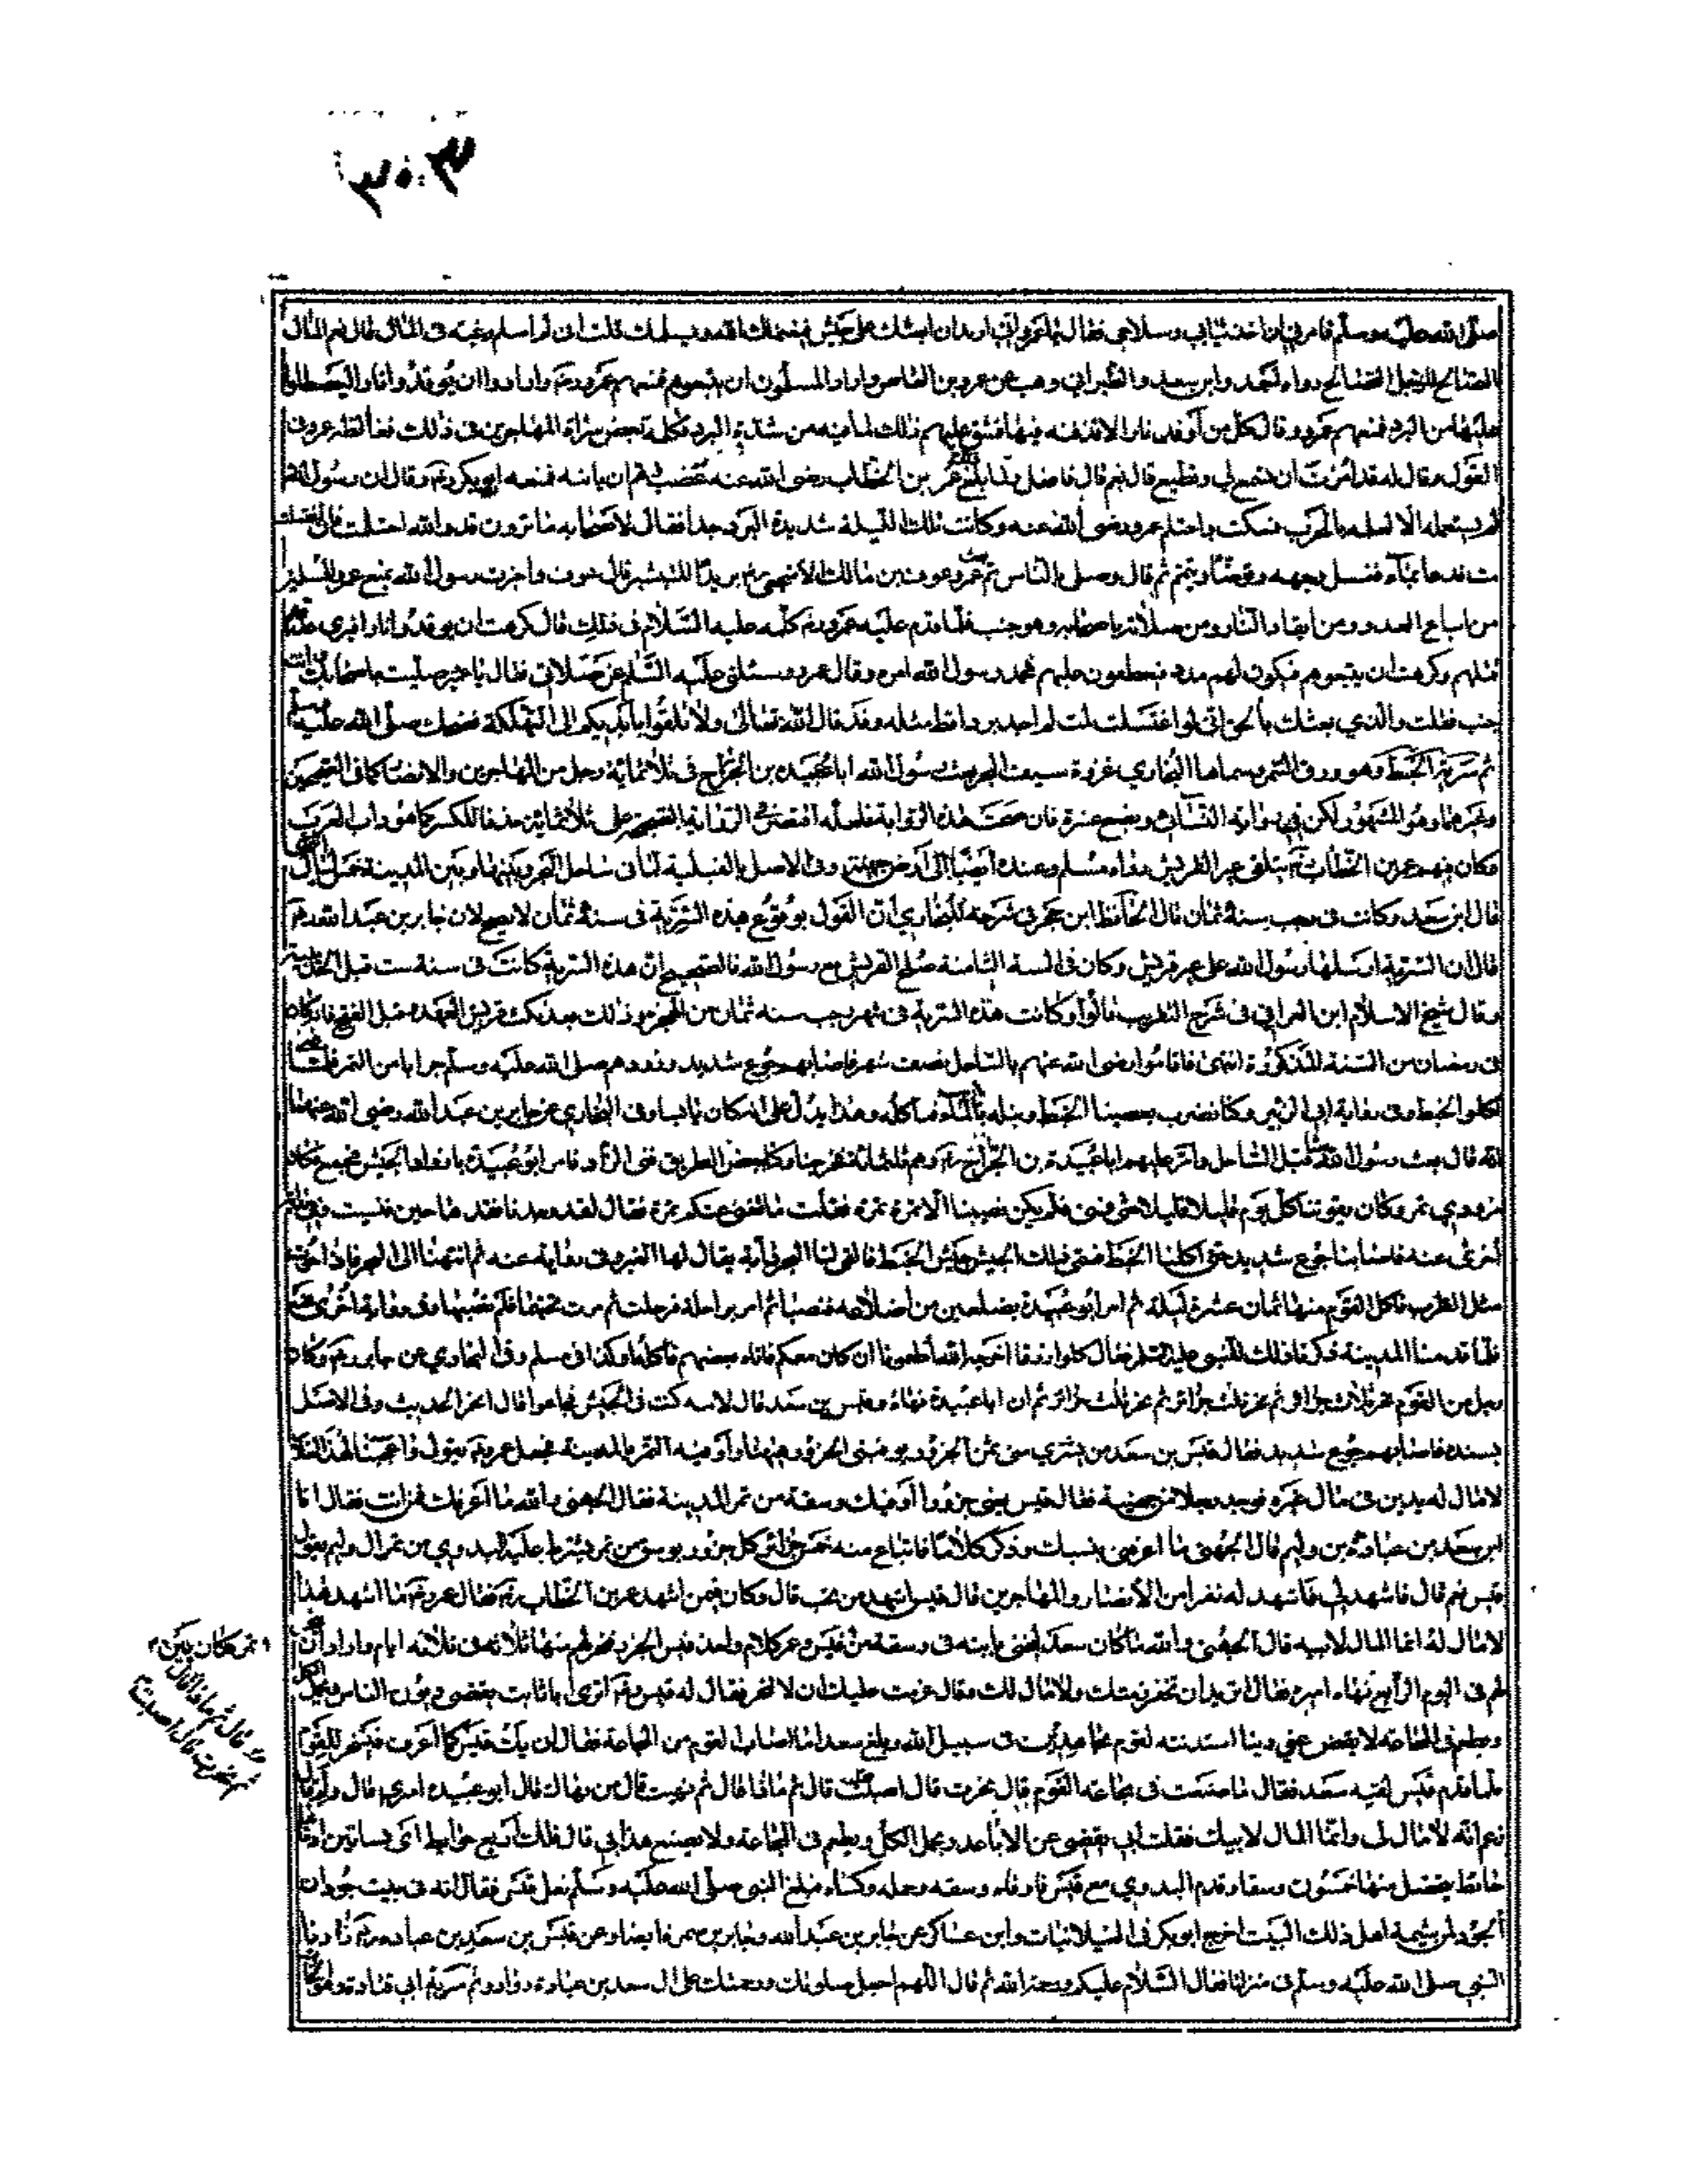 صلى الله عليه وسلم فامرني ان اخذ ثيابي وسلاحي فقال يا عمرو اني اريد ان ابعثك على جيش فيغنمك الله ويسلمك قلت اني لم اسلم رغبة في المال قال نعم المال
الصالح للرجل الصالح رواه احمد وابن سعد والطبراني وهب عن عمرو بن العاص واراد المسلمون ان يتبعوهم فمنعهم عمرو رضه وارادوا ان يوقدوا نارا ليصطلوا
عليها من البرد فمنعهم عمرو وقال كل من اوقد نارا لاقذفنه فيها فشق عليهم ذلك لما فيه من شدة البرد فكلمه بعض سراة المهاجرين في ذلك فغالظه عمرو في
القول وقال له قد امرت ان تسمع لي وتطيع قال نعم قال فافعل ولما بلغ عمر بن الخطاب رضى الله عنه غضب وهم ان ياتيه فمنعه ابو بكر رضه وقال ان رسول الله
لم يستعمله الا لعلمه بالحرب فسكت واحتلم عمرو رضى الله عنه وكانت تلك الليلة شديدة البرد جدا فقال لاصحابه ما ترون قد والله احتلمت فان اغتسلت
مت فدعا بماء فغسل وجهه وتوضأ وتيمم ثم قال وصلى بالناس ثم بعث عمرو عوف بن مالك الاشجعي رضه بريدا للتبشير قال عوف واخبرت رسول الله بمنع عمرو للمسلمين
من اتباع العدو ومن ايقاد النار ومن صلاته باصحابه وهو جنب فلما قدم عليه عمرو رضه كلمه عليه السلام في ذلك قال كرهت ان يوقدوا نارا فيرى عدوهم
قلتهم وكرهت ان يتبعوهم فيكون لهم مدد فيعطفون عليهم فحمد رسول الله امره وقال عمرو وسئلني عليه السلام عن صلاتي فقال يا عمرو صليت باصحابك وانت
جنب فقلت والذي بعثك بالحق اني لو اغتسلت لمت لم اجد بردا قط مثله وقد قال الله تعالى ولا تلقوا بايديكم الى التهلكة فضحك صلى الله عليه وسلم
ثم سرية الخبط وهو ورق السمر وسماها البخاري غزوة سيف البحر بعث رسول الله ابا عبيدة بن الجراح في ثلاثماية رجل من المهاجرين والانصار كما في الصحيحين
وغيرهما وهو المشهور لكن في رواية النسائي وبضع عشرة فان صحت هذه الرواية فلعله اقتصر في الرواية الصحيحة على ثلاثماية حذفا للكسر كما هو داب العرب
وكان فيهم عمر بن الخطاب رضه يتلقى عير القريش رواه مسلم وعنده ايضا الى ارض جهينة وفي الاصل بالقبلية مما في ساحل البحر وبينها وبين المدينة خمس ليال
قال ابن سعد وكانت في رجب سنة ثمان قال الحافظ ابن حجر في شرحه للبخاري ان القول بوقوع هذه السرية في سنة ثمان لا يصح لان جابر بن عبد الله رضه
قال ان السرية ارسلها رسول الله على عير قريش وكان في السنة الثامنة صلح القريش مع رسول الله فالصحيح ان هذه السرية كانت في سنة ست قبل الحديبية
وقال شيخ الاسلام ابن العراقي في شرح التقريب قالوا وكانت هذه السرية في شهر رجب سنه ثمان من الهجرة وذلك بعد نكث قريش العهد وقبل الفتح فانه كان
في رمضان من السنة المذكورة انتهى فاقاموا رضى الله عنهم بالساحل نصف شهر فاصابهم جوع شديد وزودهم صلى الله عليه وسلم جرابا من التمر فلما فنى
اكلوا الخبط وفى رواية ابي الزبير وكنا نضرب بعصينا الخبط ونبله بالماء فنأكله وهذا يدل على انه كان يابسا وفى البخاري عن جابر بن عبد الله رضى الله عنهما
انه قال بعث رسول الله بعثا قبل الساحل وامر عليهم ابا عبيدة بن الجراح رضه وهم ثلثمائة فخرجنا وكنا ببعض الطريق فنى الزاد فامر ابو عبيدة بازواد الجيش فجمع فكان
مزودي تمر وكان يقوتنا كل يوم قليلا قليلا حتى فنى فلم يكن نصيبنا الا تمرة تمرة فقلت ما تغني عنكم تمرة فقال لقد وجدنا فقدها حين فنيت وفى رواية
اخرى عنه فاصابنا جوع شديد حتى اكلنا الخبط فسمي ذلك الجيش جيش الخبط فالقى لنا البحر دابة يقال لها العنبر وفى رواية عنه ثم انتهينا الى البحر فاذا حوت
مثل الظرب فاكل القوم منها ثمان عشرة ليلة ثم امر ابو عبيدة بضلعين من اضلاعه فنصبا ثم امر براحلة فرحلت ثم مرت تحتهما فلم تصبهما وفى رواية اخرى عنه
فلما قدمنا المدينة ذكرنا ذلك للنبي عليه السلام فقال كلوا رزقا اخرجه الله اطعمونا ان كان معكم فاتاه بعضهم فاكله وكذا في مسلم وفى البخاري عن جابر رضه وكان
رجل من القوم نحر ثلاث جزائر ثم نحر ثلث جزائر ثم نحر ثلث جزائر ثم ان ابا عبيدة نهاه وقيس بن سعد قال لابيه كنت في الجيش فجاعوا قال انحر الحديث وفى الاصل
بسنده فاصابهم جوع شديد فقال قيس بن سعد من يشترى منى تمرا بجزور يوفيني الجزور هاهنا واوفيه التمر بالمدينة فجعل عمر رضه يقول واعجباه لهذا الغلام
لا مال له يدين في مال غيره فوجد رجلا من جهينة فقال قيس بعني جزورا اوفيك وسقة من تمر المدينة فقال الجهنى والله ما اعرفك فمن انت فقال انا
ابن سعد بن عبادة بن دليم قال الجهنى ما اعرفني بنسبك وذكر كلاما فابتاع منه خمس جزائر كل جزور بوسق من تمر يشترط عليه البدوي من تمر ال دليم يقول
قيس نعم قال فاشهد لي فاشهد له نفرا من الانصار والمهاجرين قال قيس اشهد من تحب قال وكان فيمن اشهد عمر بن الخطاب رضه فقال عمر رضه ما اشهد هذا
لا مال له انما المال لابيه قال الجهنى والله ما كان سعد ليخنى بابنه في وسقة من تمر كان بين قيس وعمر كلام واخذ قيس الجزر فنحر لهم منها ثلاثه في ثلاثه ايام واراد ان ينحر
لهم في اليوم الرابع نهاه اميره فقال اتريد ان تخفر ذمتك ولا مال لك وقال عزمت عليك ان لا تنحر فقال له قيس رضه اترى ابا ثابت يقضى ديون الناس ويحمل الكل
ويطعم في المجاعة لا يقضى عني دينا استدنته لقوم مجاهدين في سبيل الله وبلغ سعدا ما اصاب القوم من المجاعة فقال ان يك قيس كما اعرف فينحر للقوم
فلما قدم قيس لقيه سعد فقال ما صنعت في مجاعة القوم قال نحرت قال اصبت قال ثم ماذا قال ثم نهيت قال من نهاك قال ابو عبيدة اميري قال ولم قال
زعم انه لا مال لى وانما المال لابيك فقلت ابي يقضى عن الاباعد ويحمل الكل ويطعم في المجاعة ولا يصنع هذا بي قال فلك اربع حوائط اى بساتين ادناها
حائط يتحصل منها خمسون وسقا وقدم البدوي مع قيس فاوفاه وسقه وحمله وكساه فبلغ النبي صلى الله عليه وسلم فعل قيس فقال انه في بيت جود ان
الجود لمن شيمة اهل ذلك البيت اخرج ابو بكر في الغيلانيات وابن عساكر عن جابر بن عبد الله وجابر بن سمرة ايضا وعن قيس بن سعد بن عبادة رضه زارنا
النبي صلى الله عليه وسلم في منزلنا فقال السلام عليكم ورحمة الله ثم قال اللهم اجعل صلواتك ورحمتك على ال سعد بن عبادة رواه د ثم سرية ابي قتادة
تمر كان بين
قال ثم ماذا قال
ثم نحرت قال اصبت